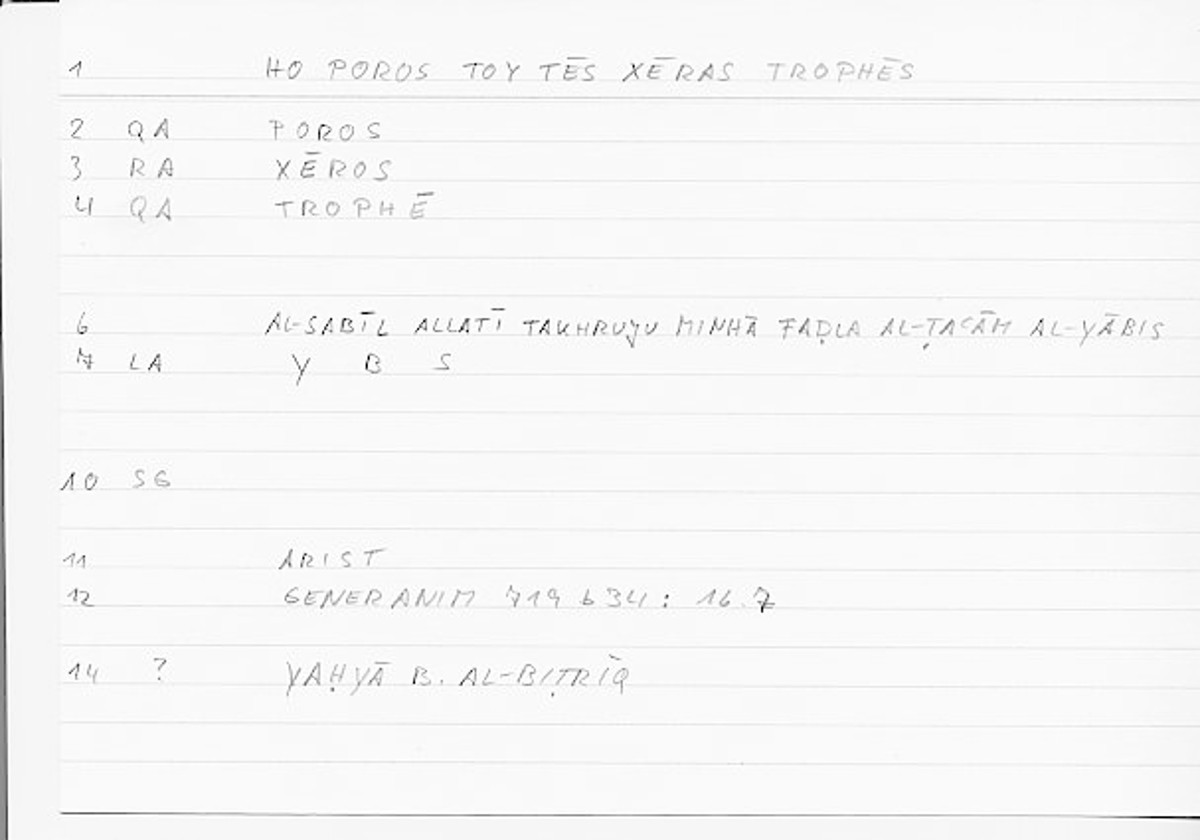 1 HO POROS TOY TĒS XĒRAS TROPHĒS
2 QA POROS
3 RA XĒROS
4 QA TROPHĒ
6 AL-SABĪL ALLATĪ TAKHRUJU MINHĀ FAḌLA AL-ṬAʿĀM AL-YĀBIS
7 LA Y B S
10 SG
11 ARIST
12 GENERANIM 719 b 34 : 16.7
14 ? YAḤYĀ B. AL-BIṬRĪQ